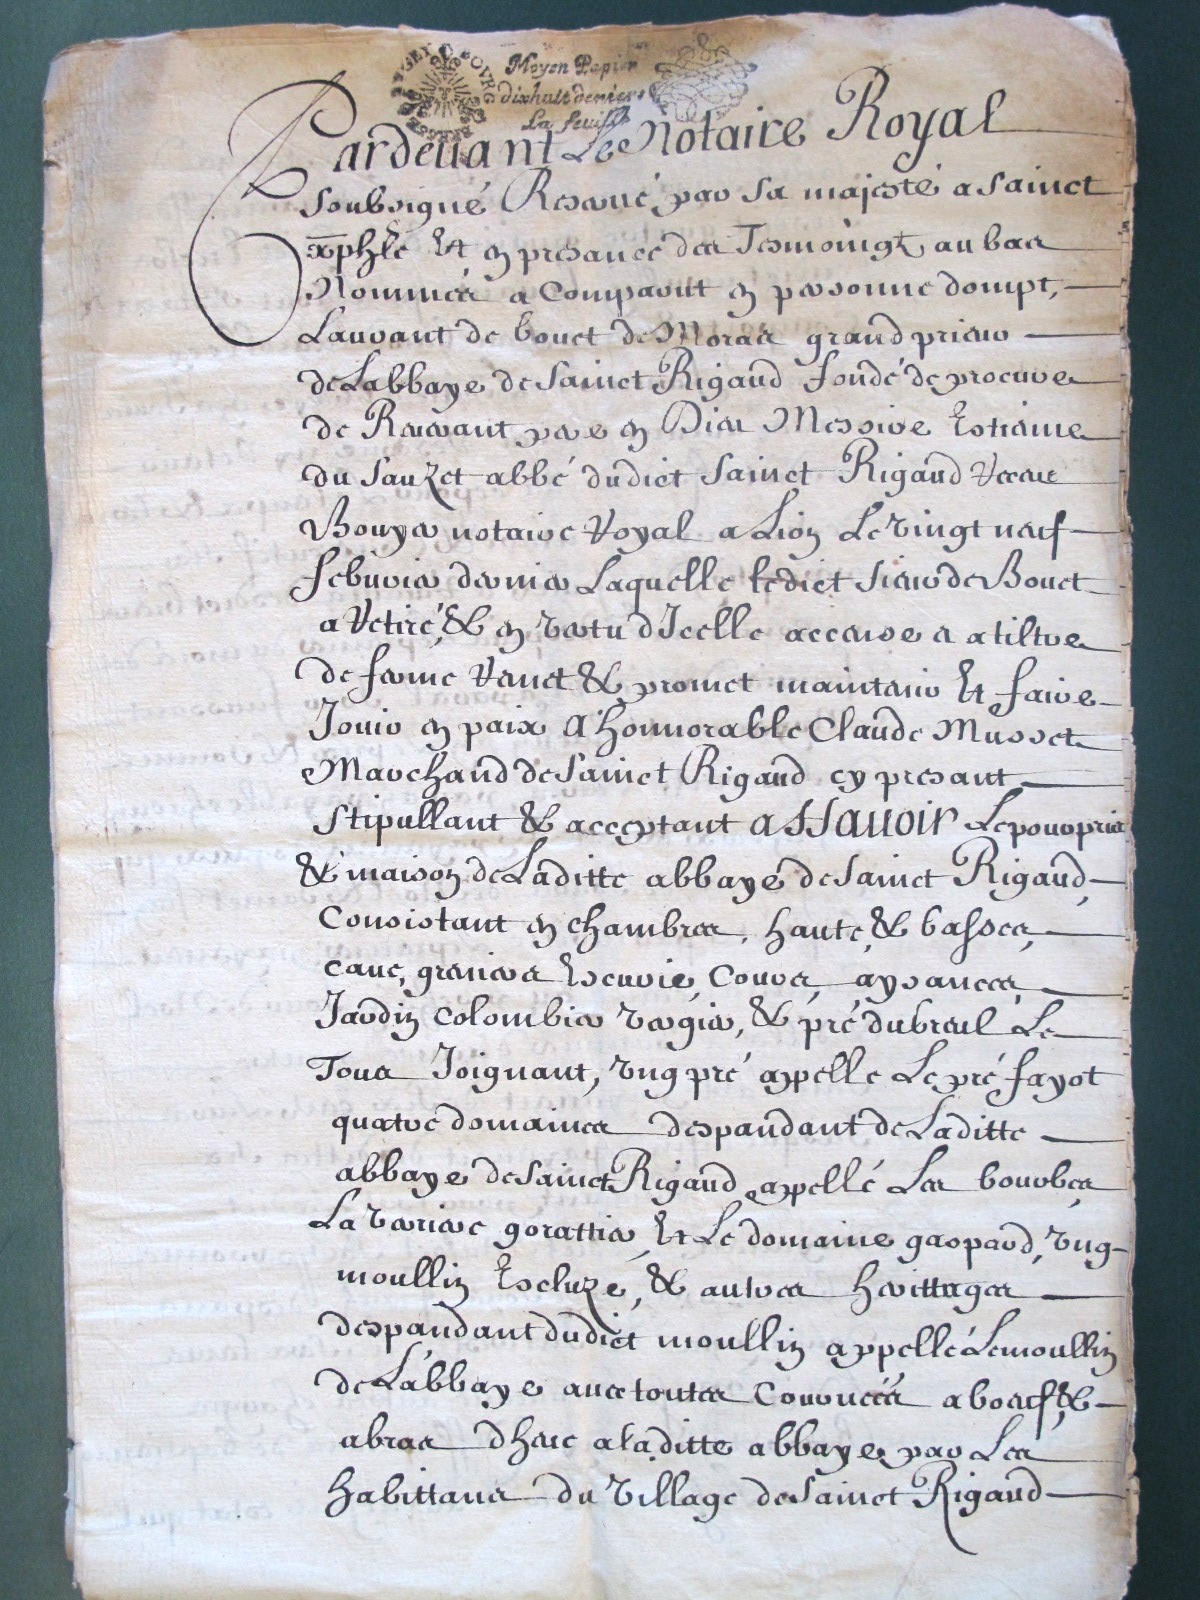 BRESSE BUGEY BOURG
Moyen Papier
dixhuit deniers
La feuille
Pardeuant Le Notaire Royal
soubsigné Reserué par sa majesté a sainct
xp̄hle Et en presance des Tesmoingz au bas
Nommés a Comparut en personne dompt,
Laurant de bouet de Moras grand prieur
de Labbaye de sainct Rigaud fondé de procure
de Reuerant pere en Dieu Messire Estienne
du sauzet abbé dudict sainct Rigaud receue
Bouyer notaire Royal a Lion Le vingt neuf
febvrier dernier Laquelle ledict sieur de Bouet
a retiré, & en vertu d'Icelle accense a a tiltre
de ferme remet & promet maintenir Et faire
Jouir en paix A honnorable Claude Musset
Marchand de sainct Rigaud cy presant
stipullant & acceptant assauoir Le pourpris
& maison de Laditte abbaye de sainct Rigaud,
Consistant en chambres, haute, & basses,
caue, greniers Escurie, Cours, aysances,
Jardin colombier vergier, & pré dubreul Le
Tous Joignant, vng pré appelle Le pré fayot
quatre domaines despandant de Laditte
abbaye de sainct Rigaud appellé Les bourbes
La verriere gorattier, Et Le domaine gaspard, vng
moullin Escluze, & autres herittages
despandant dudict moullin appellé Le moullin
de L'abbaye auec toutes Couruées a boeuf, &
a bras dheue a laditte abbaye par Les
habittans du village de sainct Rigaud